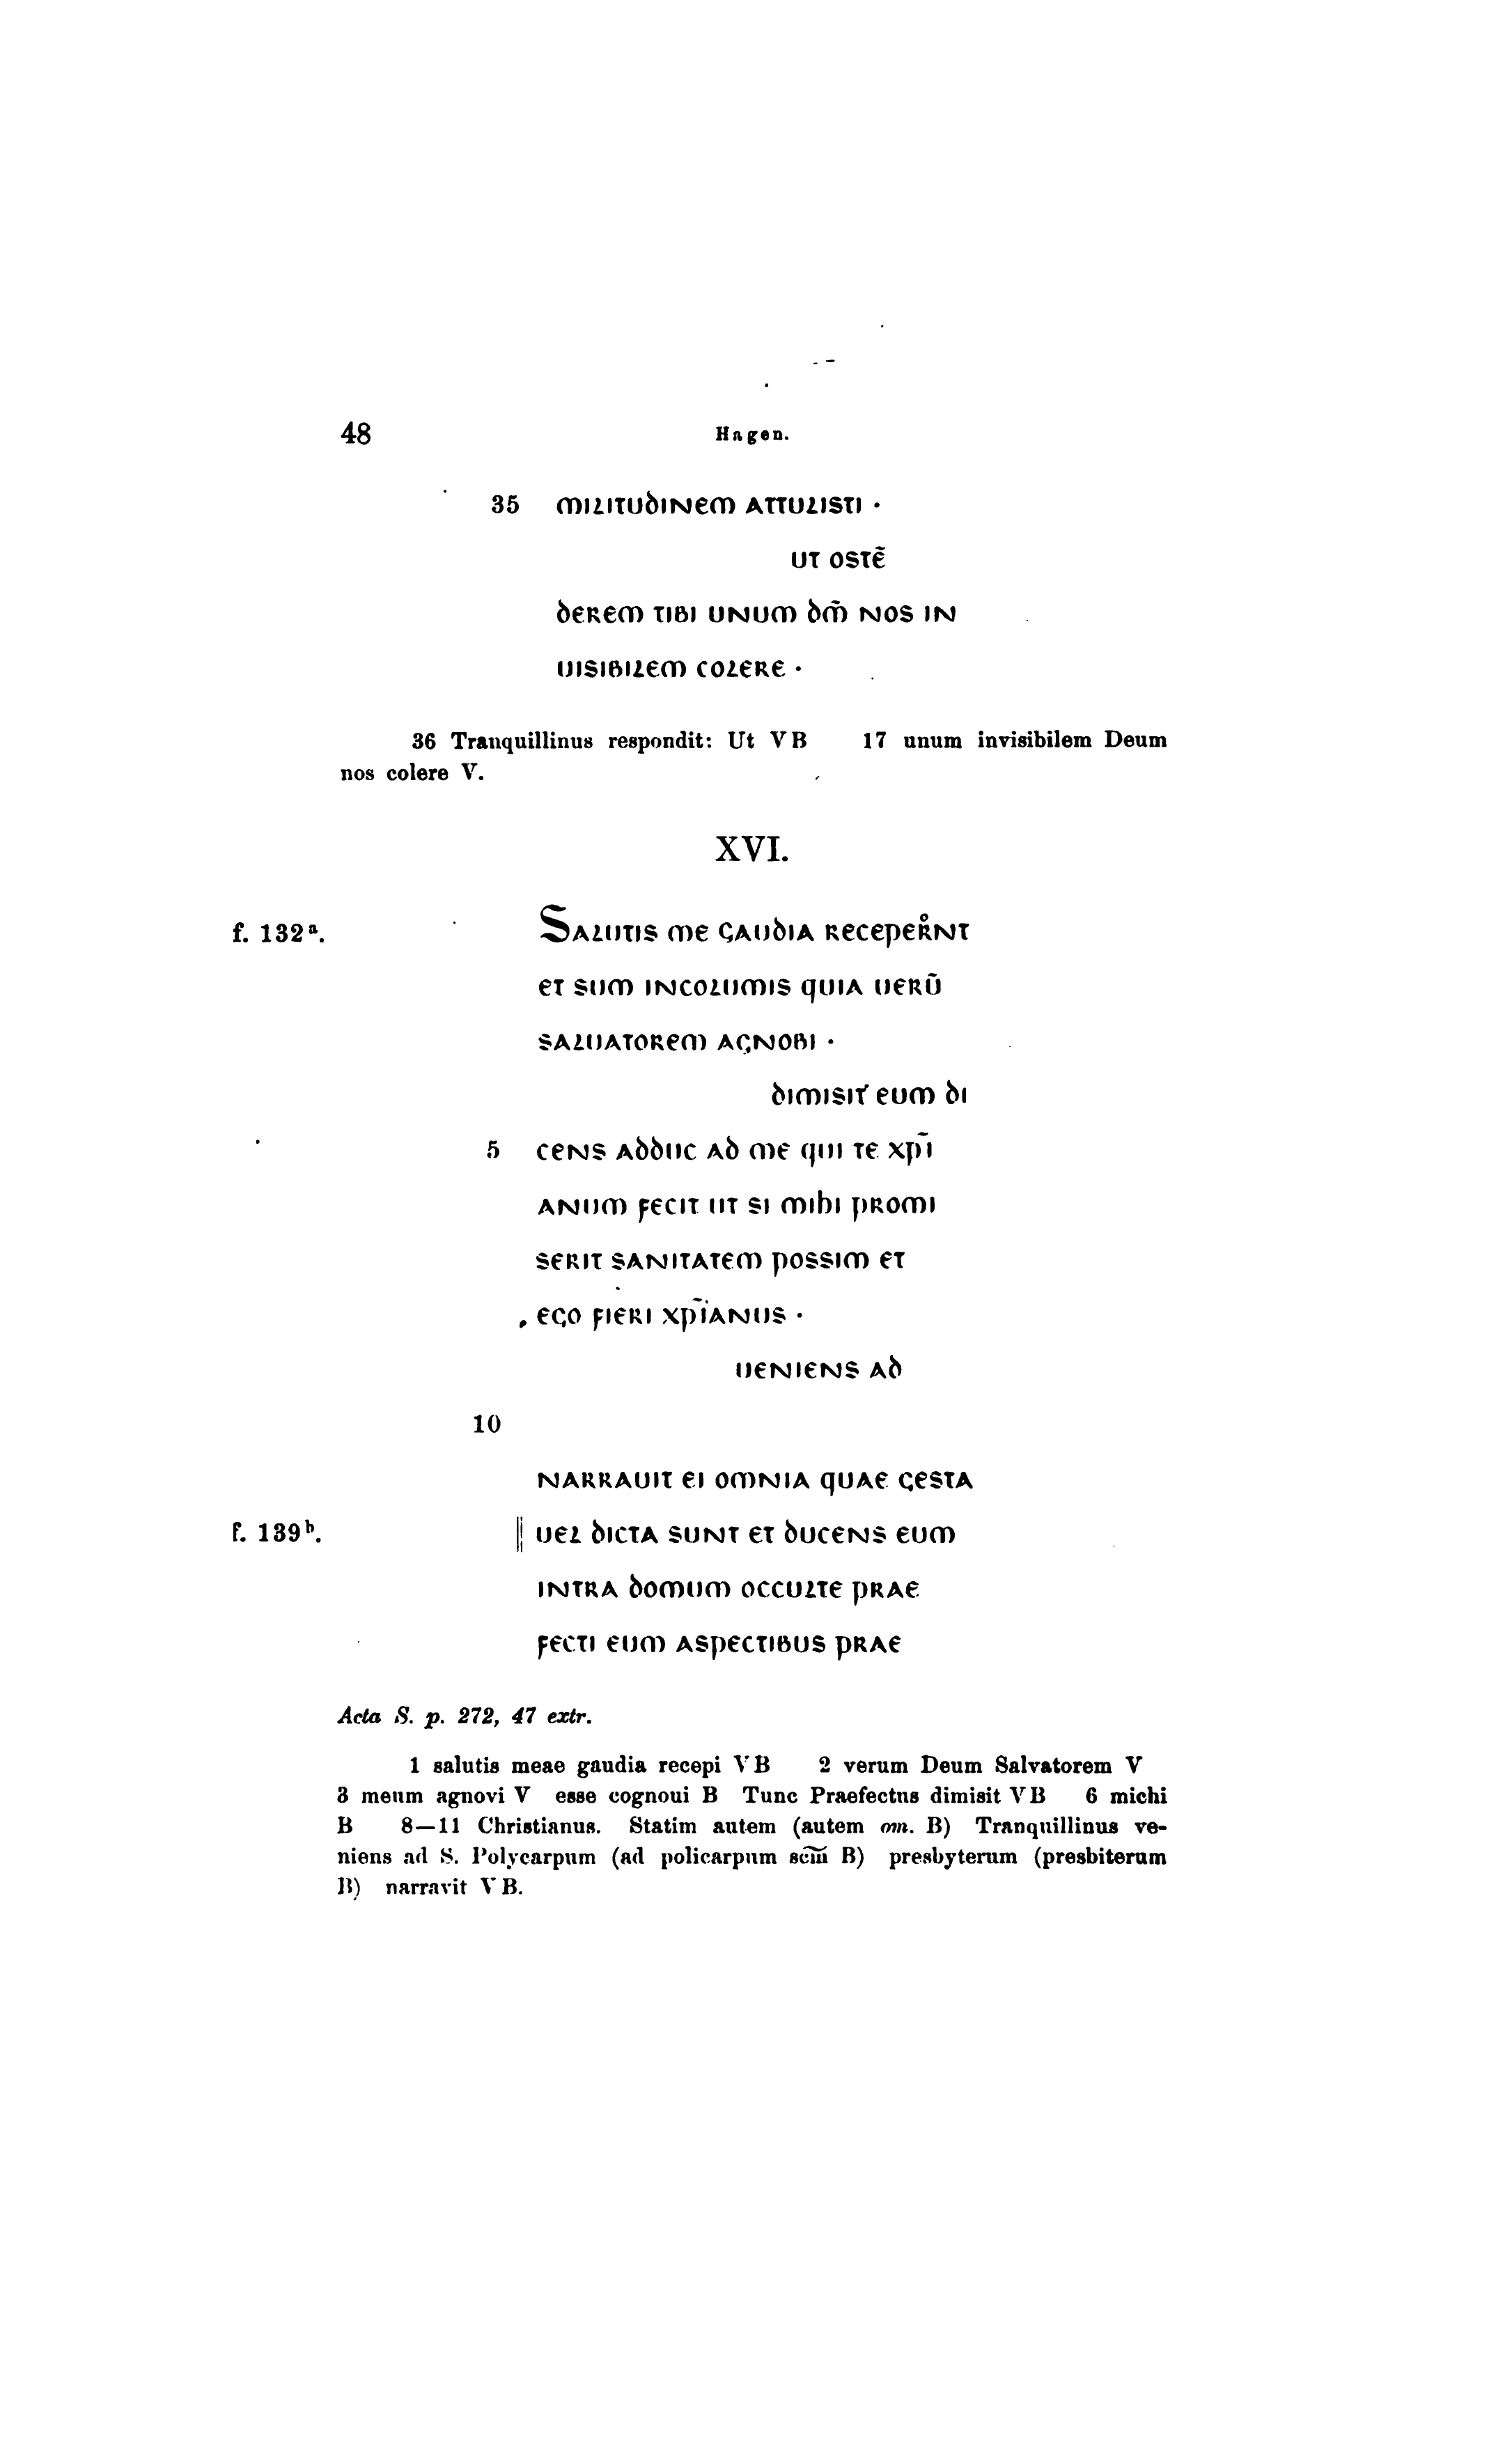 48 Hagen.
35 militudinem attulisti ·
ut ostē
derem tibi unum dm̄ nos in
uisibilem colere ·
36 Tranquillinus respondit: Ut VB 17 unum invisibilem Deum
nos colere V.
XVI.
f. 132ª. Salutis me gaudia receper̊nt
et sum incolumis quia uerū
saluatorem agnobi ·
dimisit eum di
5 cens adduc ad me qui te xp̄i
anum fecit ut si mihi promi
serit sanitatem possim et
ego fieri xp̄ianus ·
ueniens ad
10
narrauit ei omnia quae gesta
f. 139ᵇ. ‖ uel dicta sunt et ducens eum
intra domum occulte prae
fecti eum aspectibus prae
Acta S. p. 272, 47 extr.
1 salutis meae gaudia recepi VB 2 verum Deum Salvatorem V
3 meum agnovi V esse cognoui B Tunc Praefectus dimisit VB 6 michi
B 8—11 Christianus. Statim autem (autem om. B) Tranquillinus ve-
niens ad S. Polycarpum (ad policarpum scm̄ B) presbyterum (presbiterum
B) narravit VB.